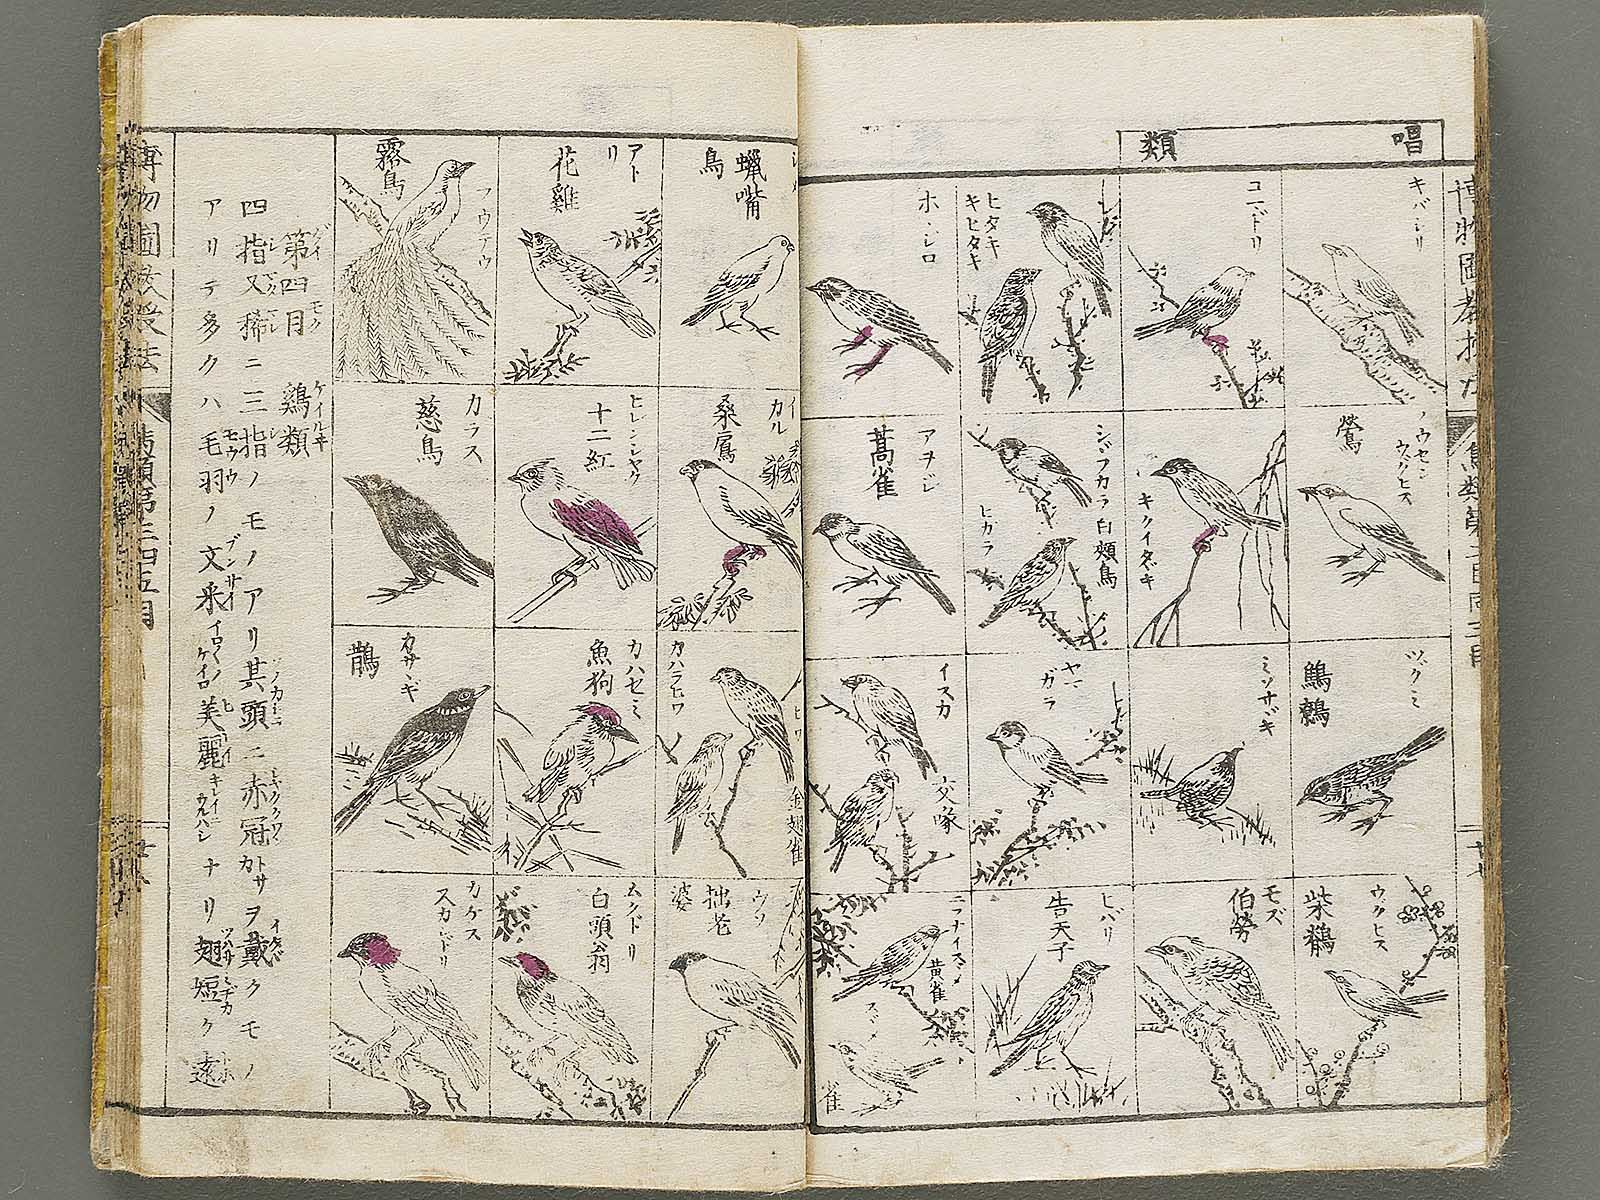 唱類
キバシリ
コマドリ
ヒタキ
キヒタキ
ホヽジロ
鶯
ウクヒス
キクイタヾキ
シジフカラ 白頬鳥
ヒガラ
アヲジ
蒿雀
ツグミ
ミソサヾキ
ヤマガラ
イスカ
交喙
ウクヒス
柴鶺
モズ
伯勞
ヒバリ
告天子
ニフナイスヾメ
黄雀
スヾメ
雀
蝋嘴鳥
アトリ
花雞
フウテウ
霧鳥
イカル
桑鳸
ヒレンジヤク
十二紅
カラス
慈鳥
ヒワ
金翅雀
カハラヒワ
カハセミ
魚狗
カサヽギ
鵲
ウソ
拙老婆
ムクドリ
白頭翁
カケス
カシドリ
第四目 鷄類
四指又稀ニ三指ノモノアリ其頭ニ赤冠ヲ戴クモノ
アリテ多クハ毛羽ノ文采美麗ナリ翅短ク遠
博物圖教授法